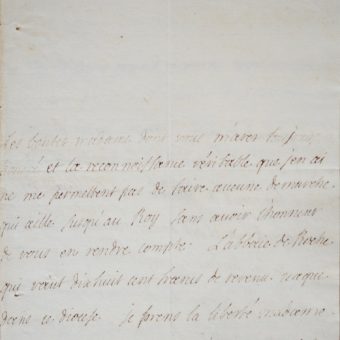 Les bontés madame dont vous m'avez toujours
et la reconnoissance véritable que j'en ai
ne me permettent pas de faire aucune demarche
qui aille jusqu'au Roy sans avoir l'honneur
de vous en rendre compte. L'abbaie de
qui vaut dixhuit cent francs de revenu vaque
dans ce diocese. je prens la liberté madame